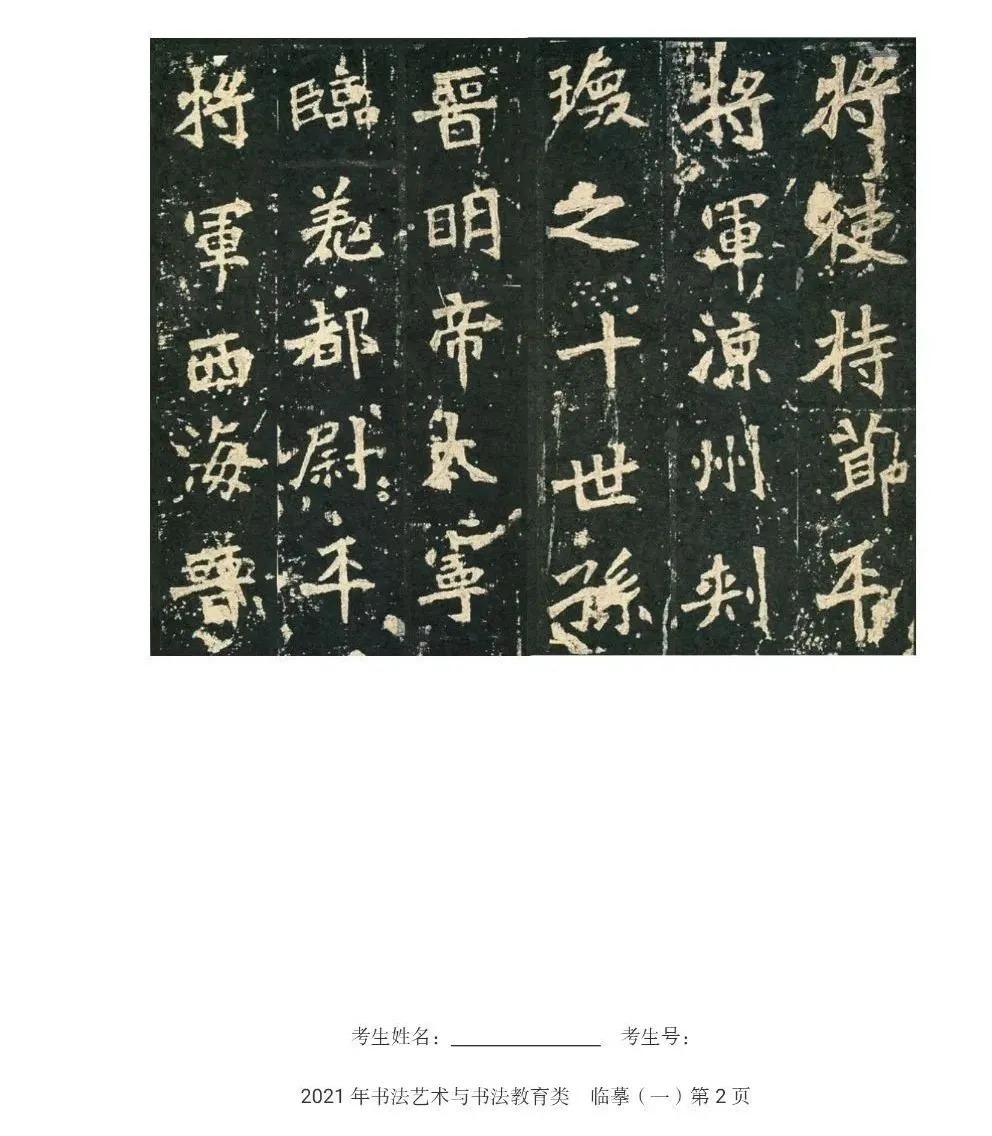 将使持節平
将軍涼州刾
瓊之十世孫
晋明帝太寧
臨羌都尉平
将軍西海晋
考生姓名：＿＿＿＿＿＿＿　考生号：
2021 年书法艺术与书法教育类　临摹（一）第 2 页